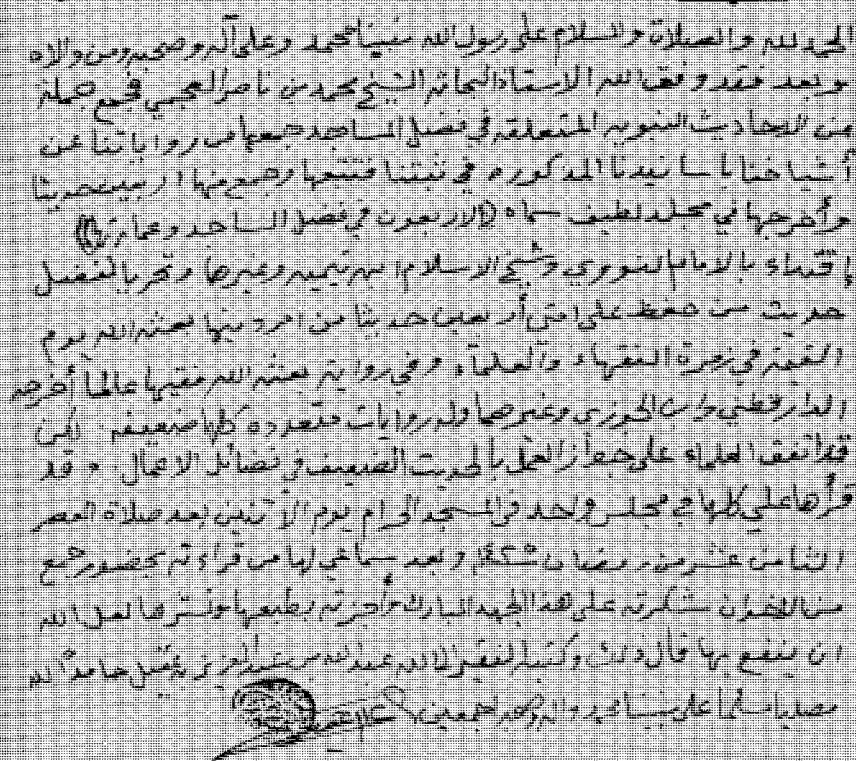 الحمد لله والصلاة والسلام على رسول الله نبينا محمد وعلى آله وصحبه ومن والاه
وبعد فقد وفق الله الاستاذ البحاثه الشيخ محمد بن ناصر العجمي فجمع جملة
من الاحاديث النبويه المتعلقه في فضل المساجد جمعها من رواياتنا عن
أشياخنا بأسانيدنا المذكوره في ثبتنا فتتبعها وجمع منها اربعين حديثا
وأخرجها في مجلد لطيف سماه (الاربعون في فضل المساجد وعمارتها)
إقتداء بالامام النووي وشيخ الاسلام ابن تيميه وغيرها وتحريا لفضل
حديث من حفظ على امتي أربعين حديثا من امر دينها بعثه الله يوم
القيمة في زمرة الفقهاء والعلماء وفي رواية بعثه الله فقيها عالما أخرجه
الدارقطني وابن الجوزي وغيرهما وله روايات متعدده كلها ضعيفه لكن
قد اتفق العلماء على جواز العمل بالحديث الضعيف في فضائل الاعمال. وقد
قرأها علي كلها في مجلس واحد في المسجد الحرام يوم الاثنين بعد صلاة العصر
الثامن عشر من رمضان ١٤٢٥ه وبعد سماعي لها من قراءته بحضور جمع
من الاخوان شكرته على هذا الجهد المبارك وأجزته بطبعها ونشرها لعل الله
ان ينفع بها قال ذلك وكتبه الفقير الى الله عبد الله بن عبد العزيز بن عقيل حامدا لله
مصليا مسلما على نبينا محمد واله وصحبه اجمعين